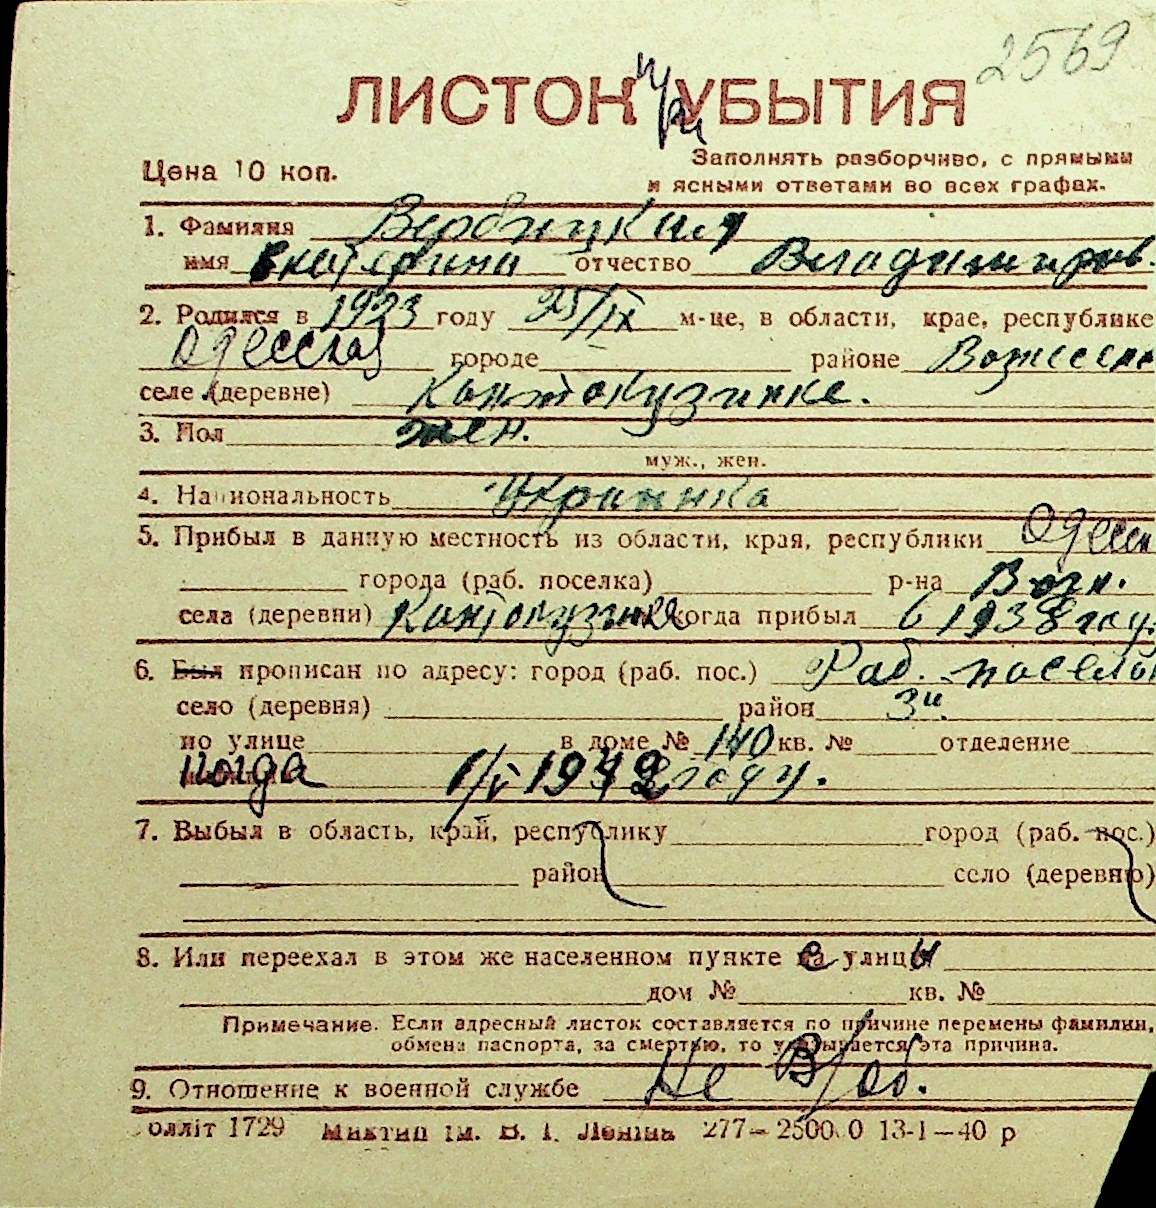 2569
ЛИСТОК УБЫТИЯ
Цена 10 коп.
Заполнять разборчиво, с прямыми
и ясными ответами во всех графах.
1. Фамилия Вербицкая
имя Екатерина отчество Владимиров.
2. Родился в 1923 году 25/IX м-це, в области, крае, республике
Одесская городе районе Вознесенс
селе (деревне) Кантокузинке.
3. Пол жен.
муж., жен.
4. Национальность Украинка
5. Прибыл в данную местность из области, края, республики Одесск
города (раб. поселка) р-на Возн.
села (деревни) Кантокузинка когда прибыл 6 1938 году.
6. Был прописан по адресу: город (раб. пос.) Раб. поселы
село (деревня) район 3й.
по улице в доме № 140 кв. № отделение
когда 1/V 1942 году.
7. Выбыл в область, край, республику город (раб. пос.)
район село (деревню)
8. Или переехал в этом же населенном пункте с улицы
дом № кв. №
Примечание. Если адресный листок составляется по причине перемены фамилии,
обмена паспорта, за смертью, то указывается эта причина.
9. Отношение к военной службе Не в/об.
олліт 1729 ім. В. І. Леніна 277—25000 13-I—40 р